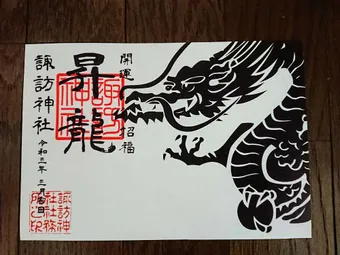 開運
招福
昇龍
諏訪神社
令和三年
諏訪神
社社務
所之印